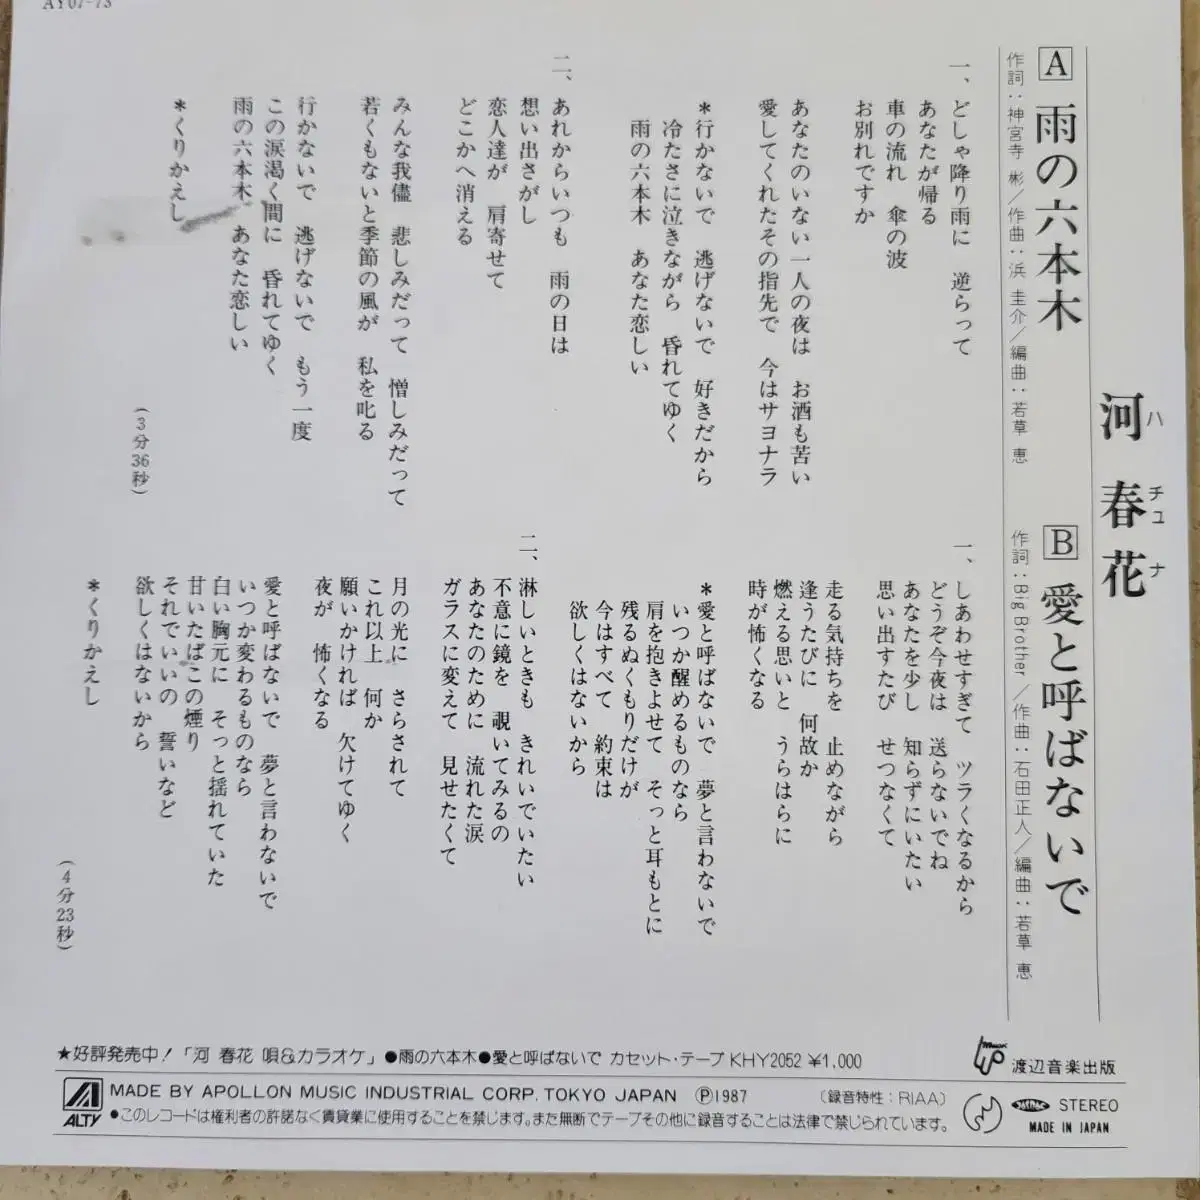 AY07-73
河 春花
ハ チュ ナ
A 雨の六本木
作詞：神宮寺 彬／作曲：浜 圭介／編曲：若草 恵
一、どしゃ降り雨に 逆らって
あなたが帰る
車の流れ 傘の波
お別れですか
あなたのいない一人の夜は お酒も苦い
愛してくれたその指先で 今はサヨナラ
＊行かないで 逃げないで 好きだから
冷たさに泣きながら 昏れてゆく
雨の六本木 あなた恋しい
二、あれからいつも 雨の日は
想い出さがし
恋人達が 肩寄せて
どこかへ消える
みんな我儘 悲しみだって 憎しみだって
若くもないと季節の風が 私を叱る
行かないで 逃げないで もう一度
この涙渇く間に 昏れてゆく
雨の六本木 あなた恋しい
＊くりかえし
(3分36秒)
B 愛と呼ばないで
作詞：Big Brother／作曲：石田正人／編曲：若草 恵
一、しあわせすぎて ツラくなるから
どうぞ今夜は 送らないでね
あなたを少し 知らずにいたい
思い出すたび せつなくて
走る気持ちを 止めながら
逢うたびに 何故か
燃える思いと うらはらに
時が怖くなる
＊愛と呼ばないで 夢と言わないで
いつか醒めるものなら
肩を抱きよせて そっと耳もとに
残るぬくもりだけが
今はすべて 約束は
欲しくはないから
二、淋しいときも きれいでいたい
不意に鏡を 覗いてみるの
あなたのために 流れた涙
ガラスに変えて 見せたくて
月の光に さらされて
これ以上 何か
願いかければ 欠けてゆく
夜が 怖くなる
愛と呼ばないで 夢と言わないで
いつか変わるものなら
白い胸元に そっと揺れていた
甘いたばこの煙り
それでいいの 誓いなど
欲しくはないから
＊くりかえし
(4分23秒)
★好評発売中！「河 春花 唄＆カラオケ」●雨の六本木●愛と呼ばないで カセット・テープ KHY2052 ¥1,000
渡辺音楽出版
ALTY
MADE BY APOLLON MUSIC INDUSTRIAL CORP. TOKYO JAPAN Ⓟ1987 〔録音特性：RIAA〕
●このレコードは権利者の許諾なく賃貸業に使用することを禁じます。また無断でテープその他に録音することは法律で禁じられています。
STEREO
MADE IN JAPAN